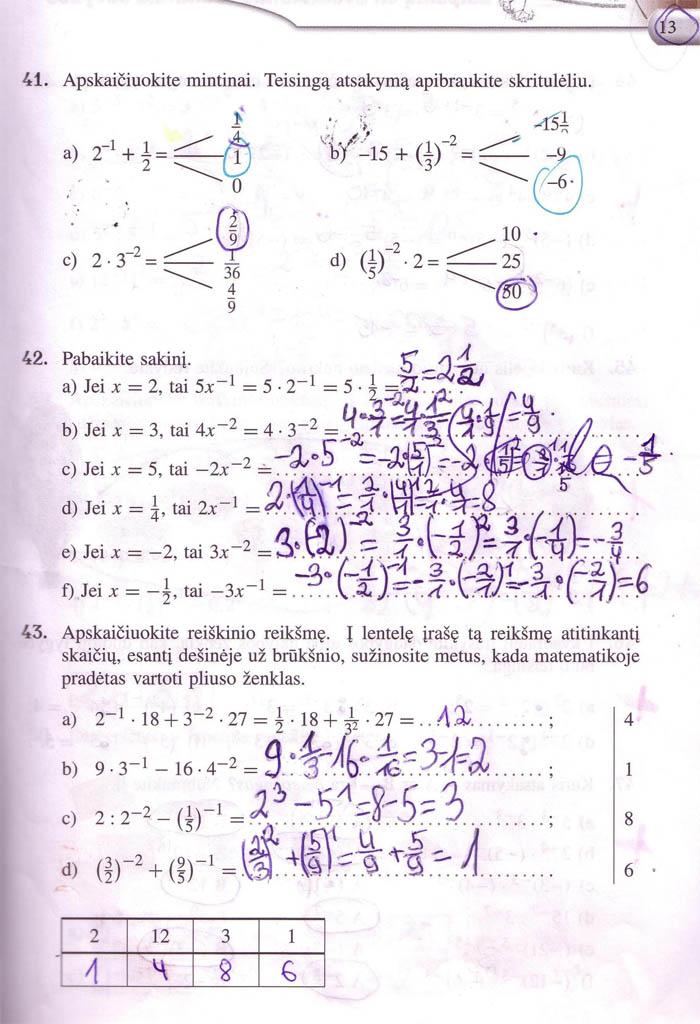 13
41. Apskaičiuokite mintinai. Teisingą atsakymą apibraukite skrituliu.
a) 2⁻¹ + 1/2 = 1/4
1
0
b) -15 + (1/3)⁻² =
-9
-6
c) 2 · 3⁻² = 2/9
1/36
4/9
d) (1/5)⁻² · 2 = 10
25
50
42. Pabaikite sakinį.
a) Jei x = 2, tai 5x⁻¹ = 5 · 2⁻¹ = 5 · 1/2 = 5/2 = 2 1/2
b) Jei x = 3, tai 4x⁻² = 4 · 3⁻² = = 4/9
c) Jei x = 5, tai −2x⁻² = -2·5⁻²
d) Jei x = 1/4, tai 2x⁻¹ = 2·(1/4)⁻¹ = 2/1 · (4/1)¹ = 2/1 · 4/1 = 8
e) Jei x = −2, tai 3x⁻² = 3·(2)⁻² = 3/1 · (-1/2)² = 3/1 · (-1/4) = -3/4
f) Jei x = −1/2, tai −3x⁻¹ = -3·(-1/2)⁻¹ = -3/1 · (-2/1)¹ = -3/1 · (-2/1) = 6
43. Apskaičiuokite reiškinio reikšmę. Į lentelę įrašę tą reikšmę atitinkantį
skaičių, esantį dešinėje už brūkšnio, sužinosite metus, kada matematikoje
pradėtas vartoti pliuso ženklas.
a) 2⁻¹ · 18 + 3⁻² · 27 = 1/2 · 18 + 1/3² · 27 = 12 ; 4
b) 9 · 3⁻¹ − 16 · 4⁻² = 9·1/3 - 16·1/16 = 3-1 = 2 ; 1
c) 2 : 2⁻² − (1/5)⁻¹ = 2³ - 5¹ = 8-5 = 3 ; 8
d) (3/2)⁻² + (9/5)⁻¹ = (2/3)² + (5/9)¹ = 4/9 + 5/9 = 1 6
2 12 3 1
1 4 8 6